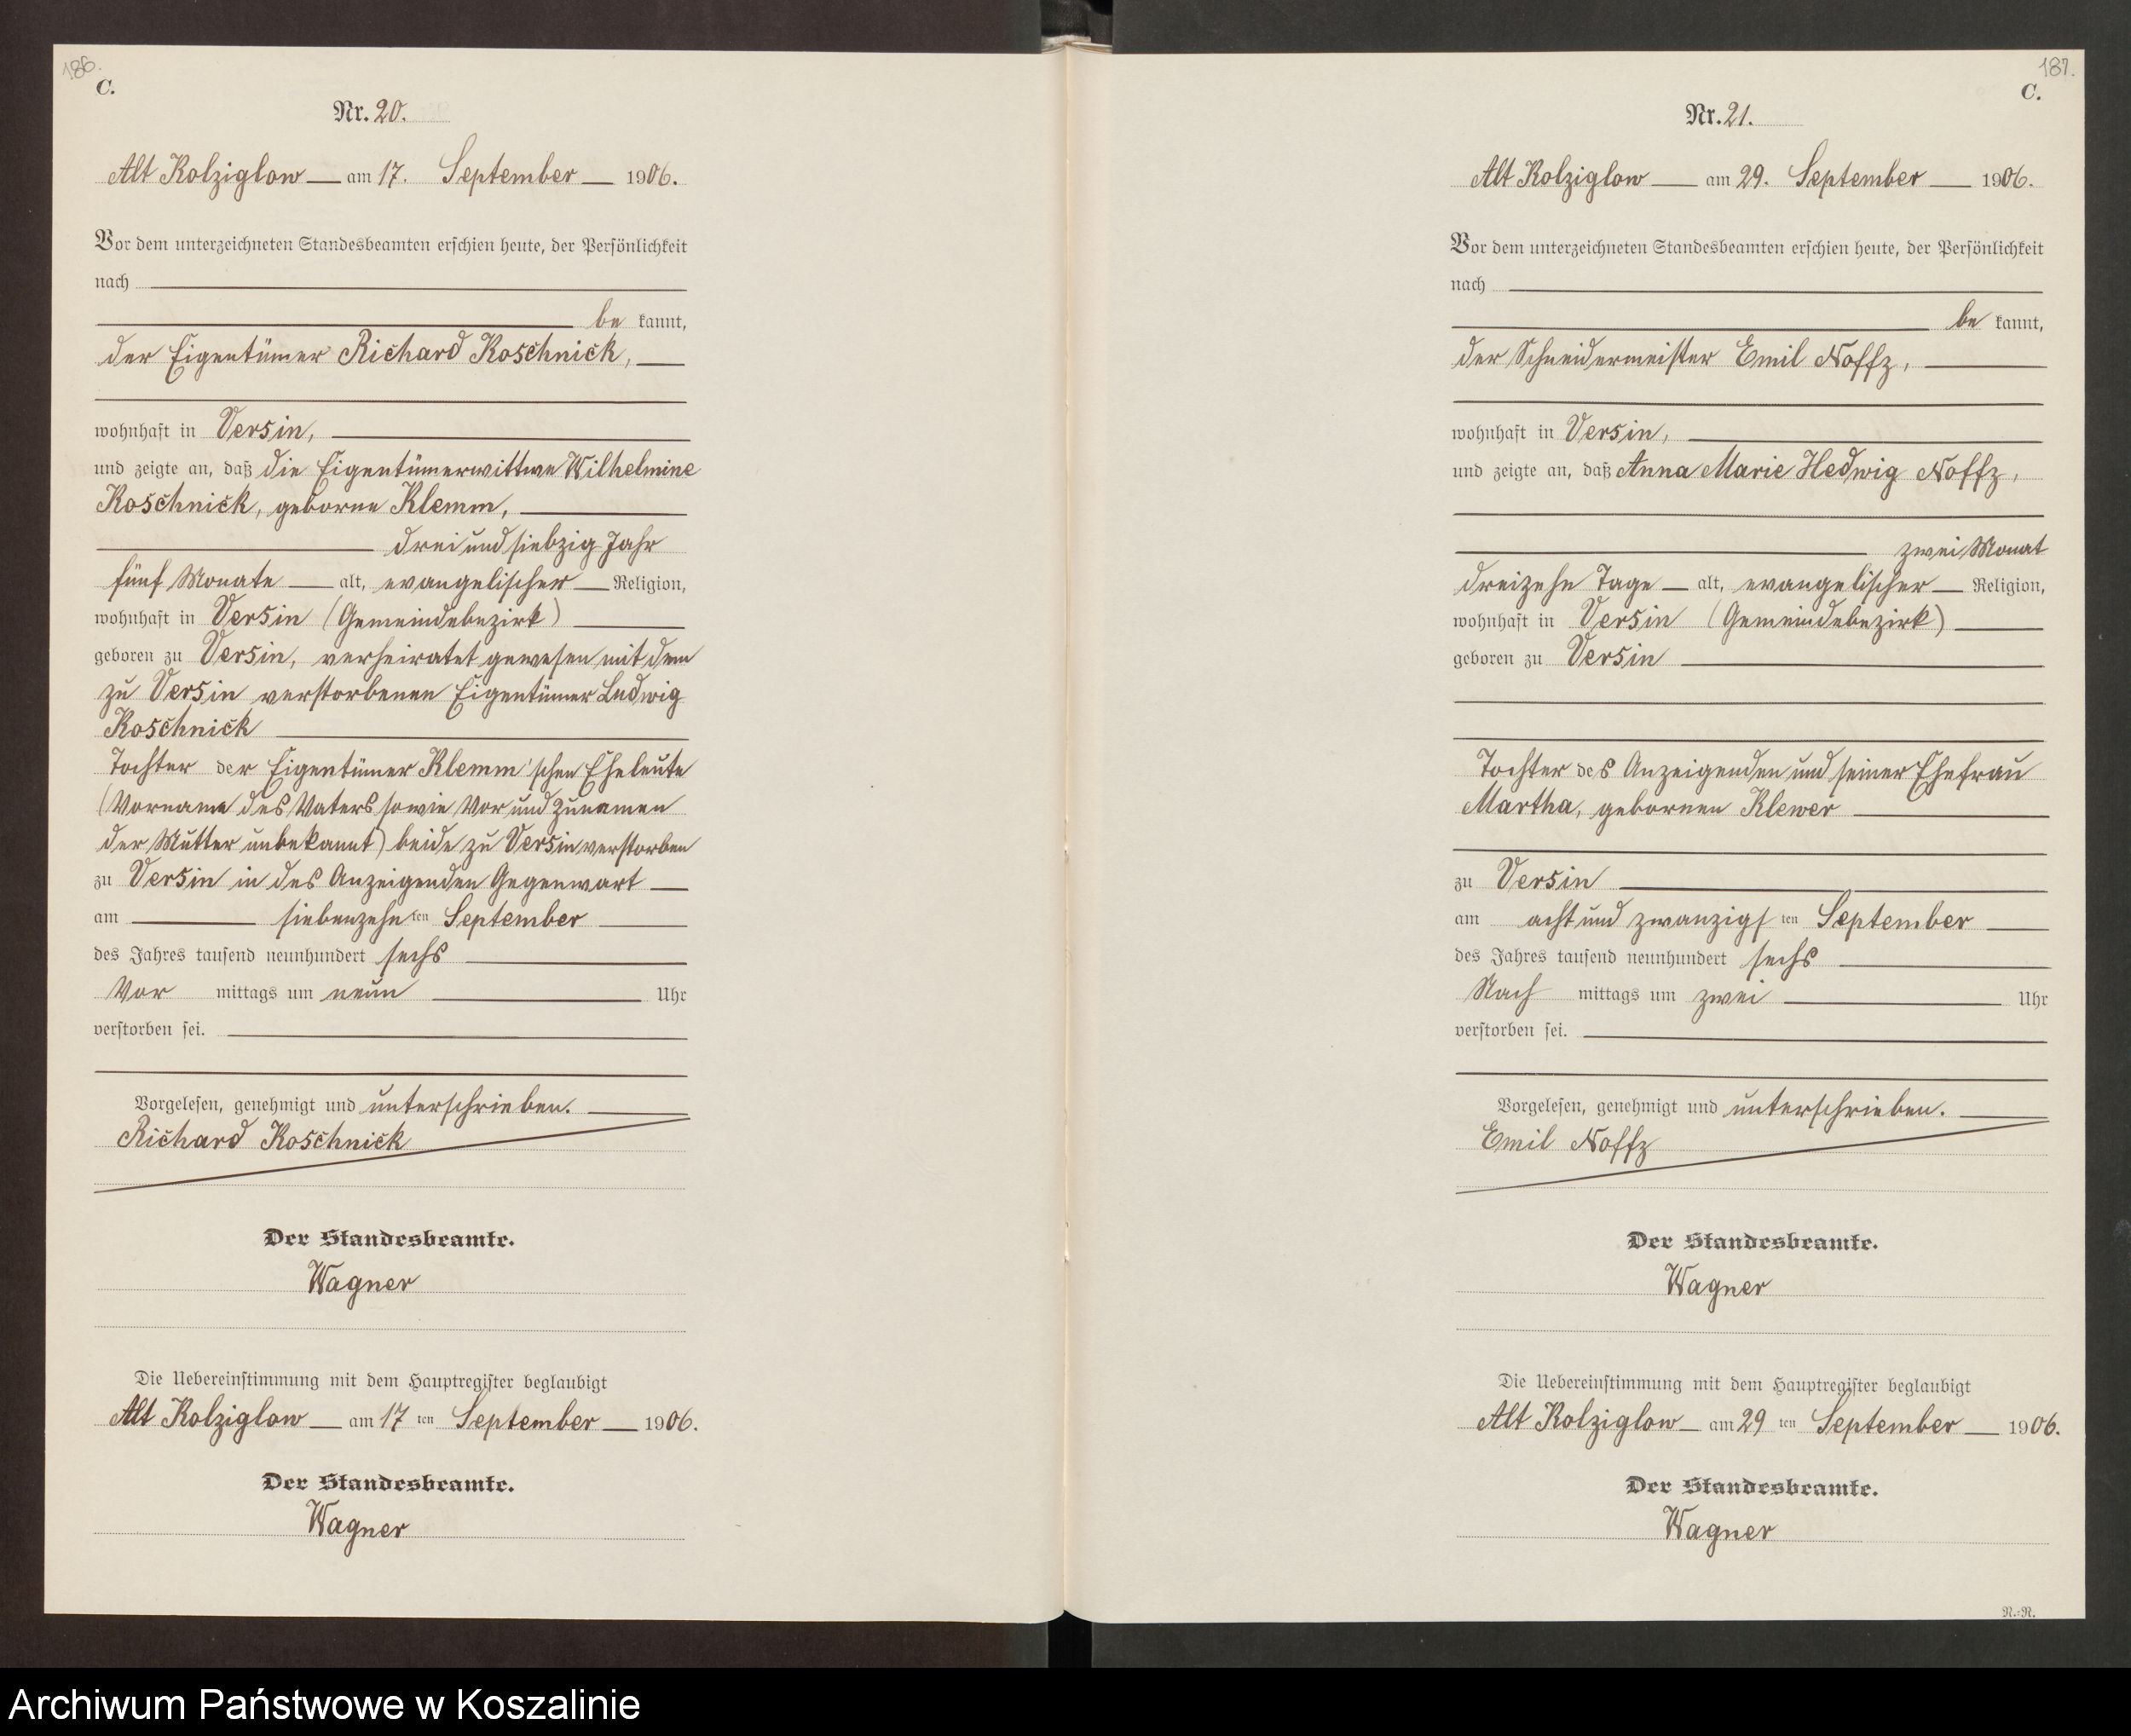 186.
C.
Nr. 20.
Alt Kolziglow am 17. September 1906.
Vor dem unterzeichneten Standesbeamten erschien heute, der Persönlichkeit
nach
be kannt,
der Eigentümer Richard Koschnick,
wohnhaft in Versin,
und zeigte an, daß die Eigentümerwittwe Wilhelmine
Koschnick, geborne Klemm,
drei und siebzig Jahr
fünf Monate alt, evangelischer Religion,
wohnhaft in Versin (Gemeindebezirk)
geboren zu Versin, verheiratet gewesen mit dem
zu Versin verstorbenen Eigentümer Ludwig
Koschnick
Tochter der Eigentümer Klemm'schen Eheleute
(Vorname des Vaters sowie Vor und Zunamen
der Mutter unbekannt) beide zu Versin verstorben
zu Versin in des Anzeigenden Gegenwart
am siebenzehn ten September
des Jahres tausend neunhundert sechs
Vor mittags um neun Uhr
verstorben sei.
Vorgelesen, genehmigt und unterschrieben.
Richard Koschnick
Der Standesbeamte.
Wagner
Die Uebereinstimmung mit dem Hauptregister beglaubigt
Alt Kolziglow am 17 ten September 1906.
Der Standesbeamte.
Wagner
187.
C.
Nr. 21.
Alt Kolziglow am 29. September 1906.
Vor dem unterzeichneten Standesbeamten erschien heute, der Persönlichkeit
nach
be kannt,
der Schneidermeister Emil Noffz,
wohnhaft in Versin,
und zeigte an, daß Anna Marie Hedwig Noffz,
zwei Monat
dreizehn Tage alt, evangelischer Religion,
wohnhaft in Versin (Gemeindebezirk)
geboren zu Versin
Tochter des Anzeigenden und seiner Ehefrau
Martha, gebornen Klewer
zu Versin
am acht und zwanzigs ten September
des Jahres tausend neunhundert sechs
Nach mittags um zwei Uhr
verstorben sei.
Vorgelesen, genehmigt und unterschrieben.
Emil Noffz
Der Standesbeamte.
Wagner
Die Uebereinstimmung mit dem Hauptregister beglaubigt
Alt Kolziglow am 29 ten September 1906.
Der Standesbeamte.
Wagner
N.=N.
Archiwum Państwowe w Koszalinie